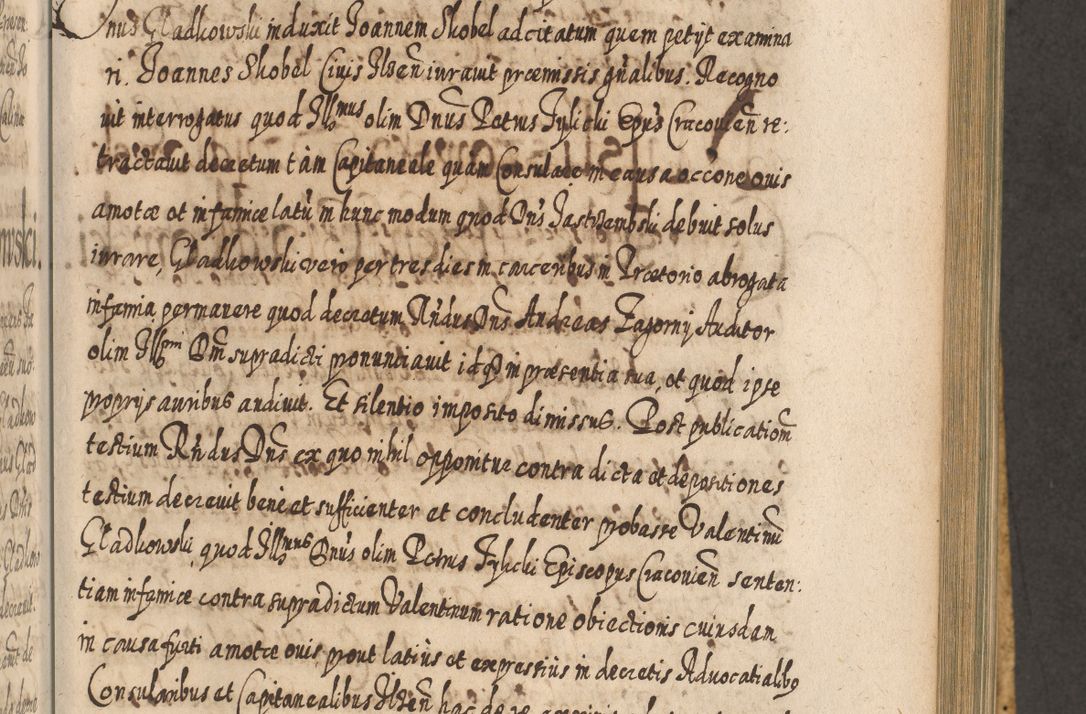 Dnus Gladkowski induxit Joannem Skobel ad citatum quem petyt examina
ri. Joannes Skobel Civis Ilzen̄ iuravit præmissis gn̄alibus. Recogno
vit interrogatus quod Illmus olim Dnus Petrus Tylicki Epus Cracovien̄ re:
tractavit decretum tam Capitaneale quam Consulare in causa occōne ovis
amotæ et infamiæ latū in hunc modum quod Dns Jastrzembski debuit solus
iurare, Gladkowski vero per tres dies in carceribus in Prætorio abrogata
infamia permanere quod decretum Rndus Dns Andreas Zagorny Auditor
olim Illmi Dni supradicti pronunciavit idq̄ in præsentia sua, et quod ipse
proprys auribus audivit. Et silentio imposito dimissus. Post publicationē
testium Rndus Dns ex quo nihil opponitur contra dicta et depositiones
testium decrevit bene et sufficienter et concludenter probasse Valentinū
Gladkowski, quod Illmus Dnus olim Petrus Tylicki Episcopus Cracovien̄ senten:
tiam infamiæ contra supradictum Valentinum ratione obiectionis cuiusdam
in causa furti amotæ ovis, prout latius et expressius in decretis Advocatialibȝ
Consularibus et Capitanealibus Ilzen̄ hac de re